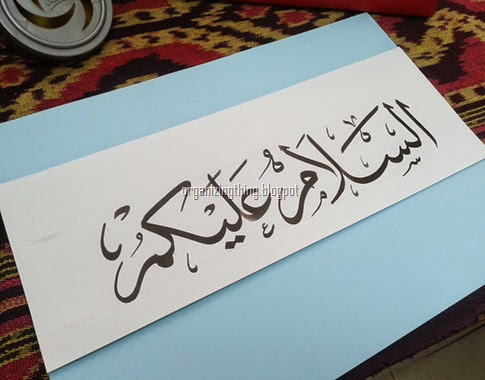 السَّلَامُ عَلَيْكُمْ
organizingthing.blogspot